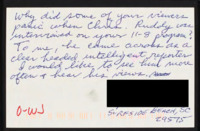 Why did some of your viewers
panic when Clinic. Rudley was
interviewed on your 11-8 program?
To me, he came across as a
clear headed intelligent reporter.
I would like to see him more
often & hear his views.
O-WS
SURFSIDE BEACH, SC
29575